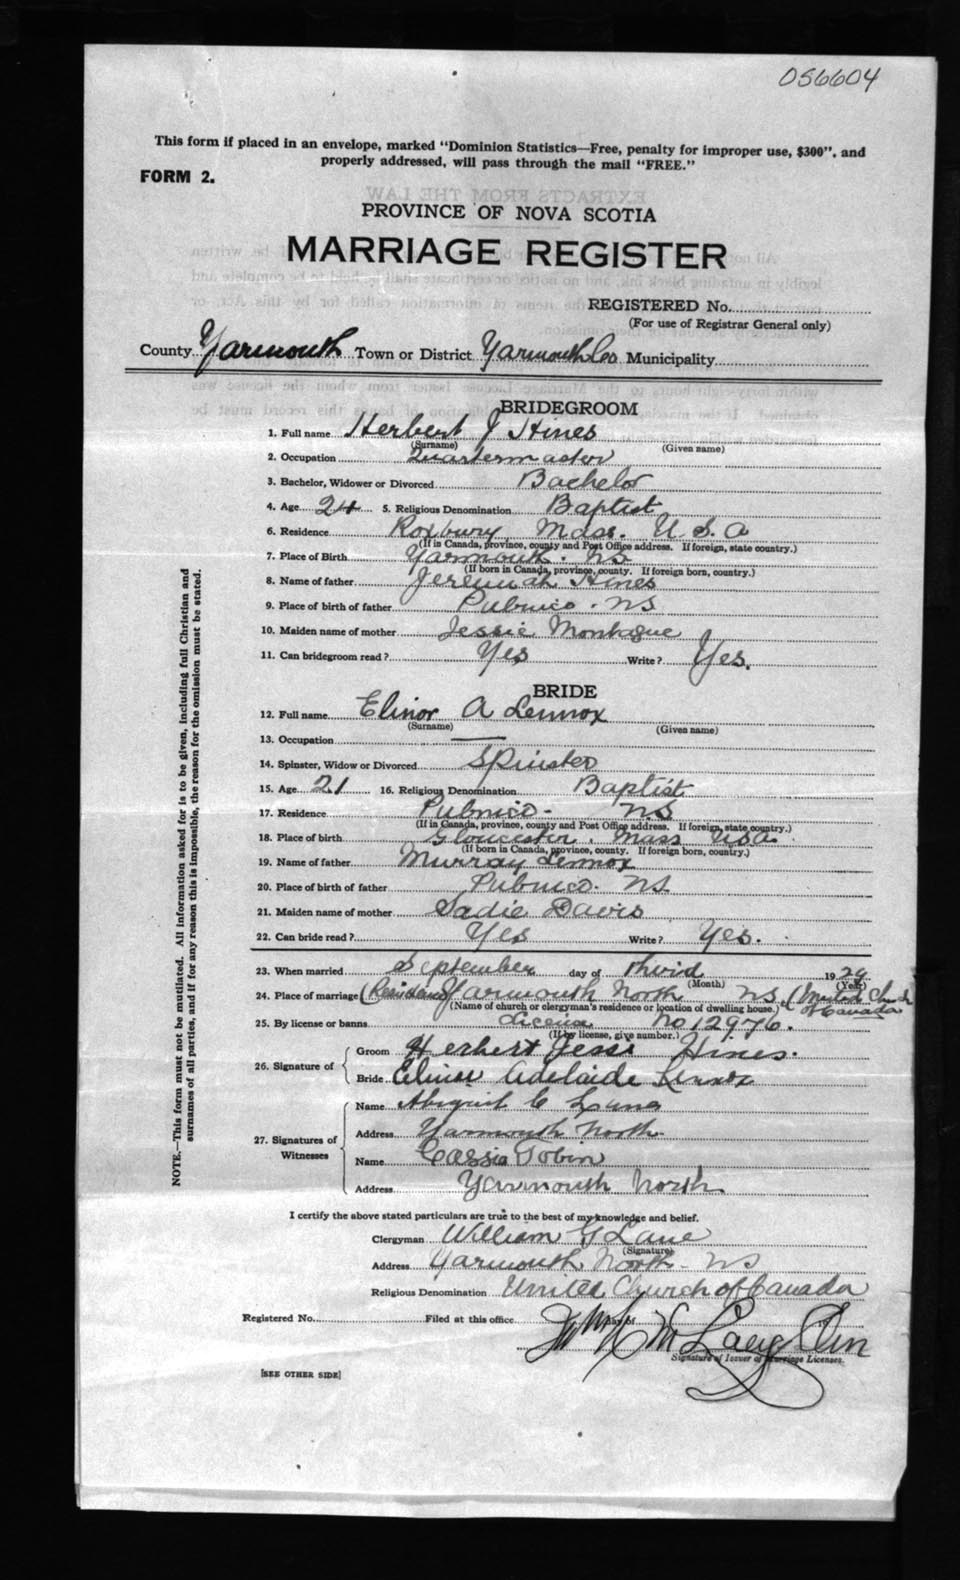 056604
This form if placed in an envelope, marked "Dominion Statistics—Free, penalty for improper use, $300", and
properly addressed, will pass through the mail "FREE."
FORM 2.
PROVINCE OF NOVA SCOTIA
MARRIAGE REGISTER
REGISTERED No.
(For use of Registrar General only)
County Yarmouth Town or District Yarmouth Co Municipality
BRIDEGROOM
1. Full name Herbert J Hines
(Surname) (Given name)
2. Occupation Quartermaster
3. Bachelor, Widower or Divorced Bachelor
4. Age 24 5. Religious Denomination Baptist
6. Residence Roxbury Mass. U S A
(If in Canada, province, county and Post Office address. If foreign, state country.)
7. Place of Birth Yarmouth. NS
(If born in Canada, province, county. If foreign born, country.)
8. Name of father Jeremiah Hines
9. Place of birth of father Pubnico. NS
10. Maiden name of mother Jessie Montague
11. Can bridegroom read? Yes Write? Yes.
BRIDE
12. Full name Elinor A Lennox
(Surname) (Given name)
13. Occupation —
14. Spinster, Widow or Divorced Spinster
15. Age 21 16. Religious Denomination Baptist
17. Residence Pubnico- NS
(If in Canada, province, county and Post Office address. If foreign, state country.)
18. Place of birth Gloucester. Mass USA
(If born in Canada, province, county. If foreign born, country.)
19. Name of father Murray Lennox
20. Place of birth of father Pubnico. NS
21. Maiden name of mother Sadie Davis
22. Can bride read? Yes Write? Yes.
23. When married September day of third 1929
(Month) (Year)
24. Place of marriage (Residence) Yarmouth North NS. (United Church of Canada
(Name of church or clergyman's residence or location of dwelling house.)
25. By license or banns License No 12976.
(If by license, give number.)
26. Signature of Groom Herbert Jessi Hines.
Bride Elinor Adelaide Lennox
27. Signatures of Witnesses
Name C Lane
Address Yarmouth North
Name Cassie Tobin
Address Yarmouth North
I certify the above stated particulars are true to the best of my knowledge and belief.
Clergyman William G Lane
(Signature)
Address Yarmouth North- NS
Religious Denomination United Church of Canada
Registered No. Filed at this office day of
Signature of Issuer of Marriage Licenses.
[SEE OTHER SIDE]
NOTE.—This form must not be mutilated. All information asked for is to be given, including full Christian and
surnames of all parties, and if for any reason this is impossible, the reason for the omission must be stated.